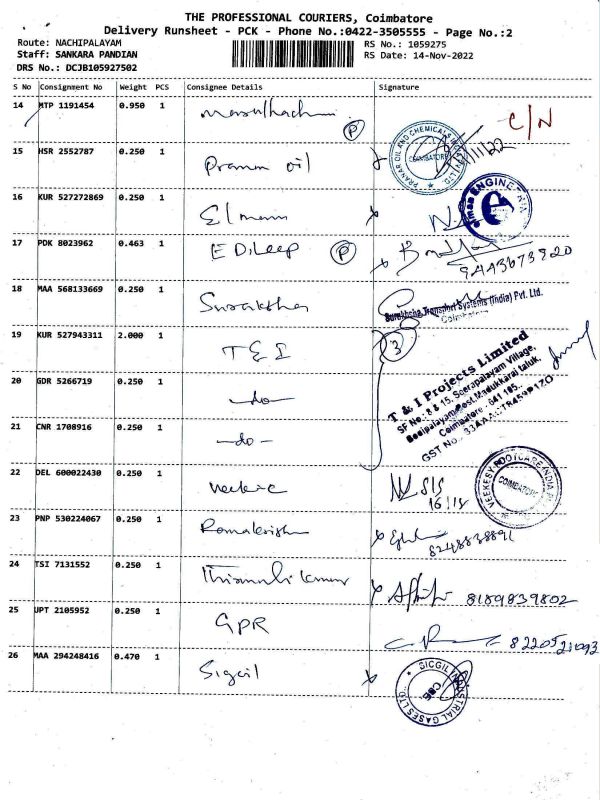 THE PROFESSIONAL COURIERS, Coimbatore
Delivery Runsheet - PCK - Phone No.:0422-3505555 - Page No.:2
Route: NACHIPALAYAM
RS No.: 1059275
Staff: SANKARA PANDIAN
RS Date: 14-Nov-2022
DRS No.: DCJB105927502
S No Consignment No Weight PCS Consignee Details Signature
14 MTP 1191454 0.950 1 P C/N
15 HSR 2552787 0.250 1 Pranav oil
PRANAV OIL AND CHEMICALS COIMBATORE
16 KUR 527272869 0.250 1
ENGINE
17 PDK 8023962 0.463 1 E Dileep P
9443673920
18 MAA 568133669 0.250 1 Suraksha
Suraksha Transport Systems (India) Pvt. Ltd.
Coimbatore
19 KUR 527943311 2.000 1 T & I 3
T & I Projects Limited
SF No.: 8 & 15, Seerapalayam Village,
Seerapalayam Post, Madukkarai taluk,
Coimbatore - 641 105.
GST No.
20 GDR 5266719 0.250 1 -do-
21 CNR 1708916 0.250 1 -do-
22 DEL 600022430 0.250 1
VEEKESY FOOTCARE INDIA COIMBATORE
23 PNP 530224067 0.250 1 Ramakrish
8248838891
24 TSI 7131552 0.250 1
8189839802
25 UPT 2105952 0.250 1 GPR
26 MAA 294248416 0.470 1 Sigcil
SICGIL INDUSTRIAL GASES LTD. CBE